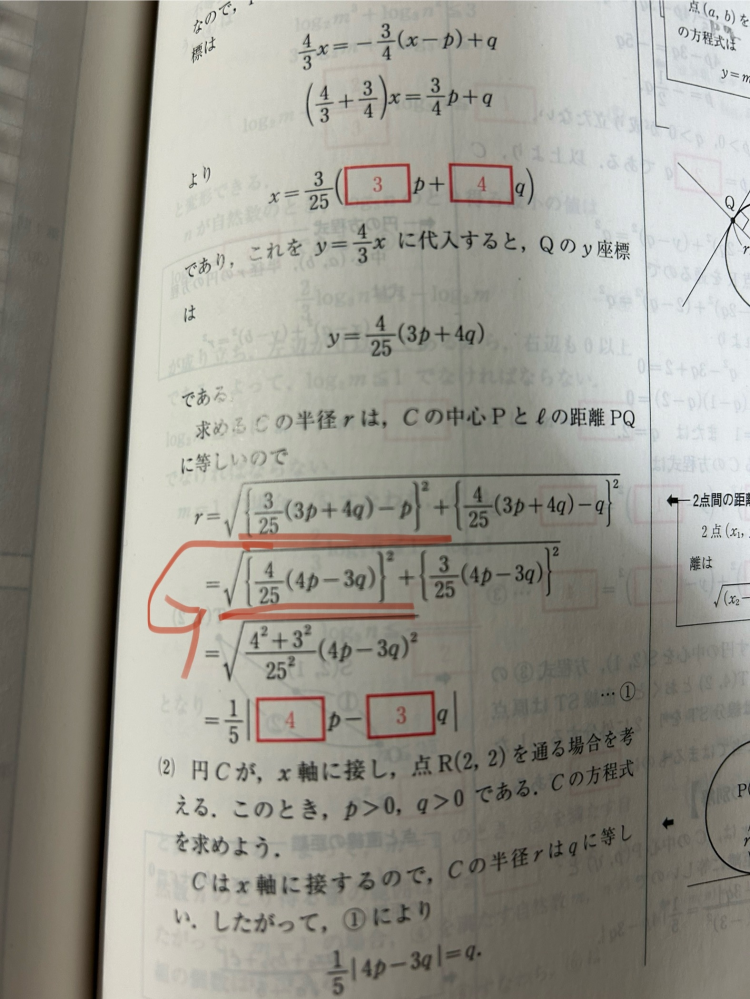 なので，
標は
4/3 x = −3/4 (x−p)+q
(4/3 + 3/4)x = 3/4 p+q
より
x = 3/25 ( 3 p + 4 q)
であり，これを y = 4/3 x に代入すると，Qのy座標
は
y = 4/25 (3p+4q)
である．
求めるCの半径rは，Cの中心Pとℓの距離PQ
に等しいので
r = √({3/25 (3p+4q)−p}² + {4/25 (3p+4q)−q}²)
= √({4/25 (4p−3q)}² + {3/25 (4p−3q)}²)
= √((4²+3²)/25² (4p−3q)²)
= 1/5 | 4 p − 3 q | …①
(2) 円Cが，x軸に接し，点R(2, 2)を通る場合を考
える．このとき，p>0，q>0である．Cの方程式
を求めよう．
Cはx軸に接するので，Cの半径rはqに等し
い．したがって，①により
1/5 |4p−3q|=q.
点(a, b)を
の方程式は
y=m
Q
r
←2点間の距
2点(x₁,
離は
√(x₂−
←
P(
r